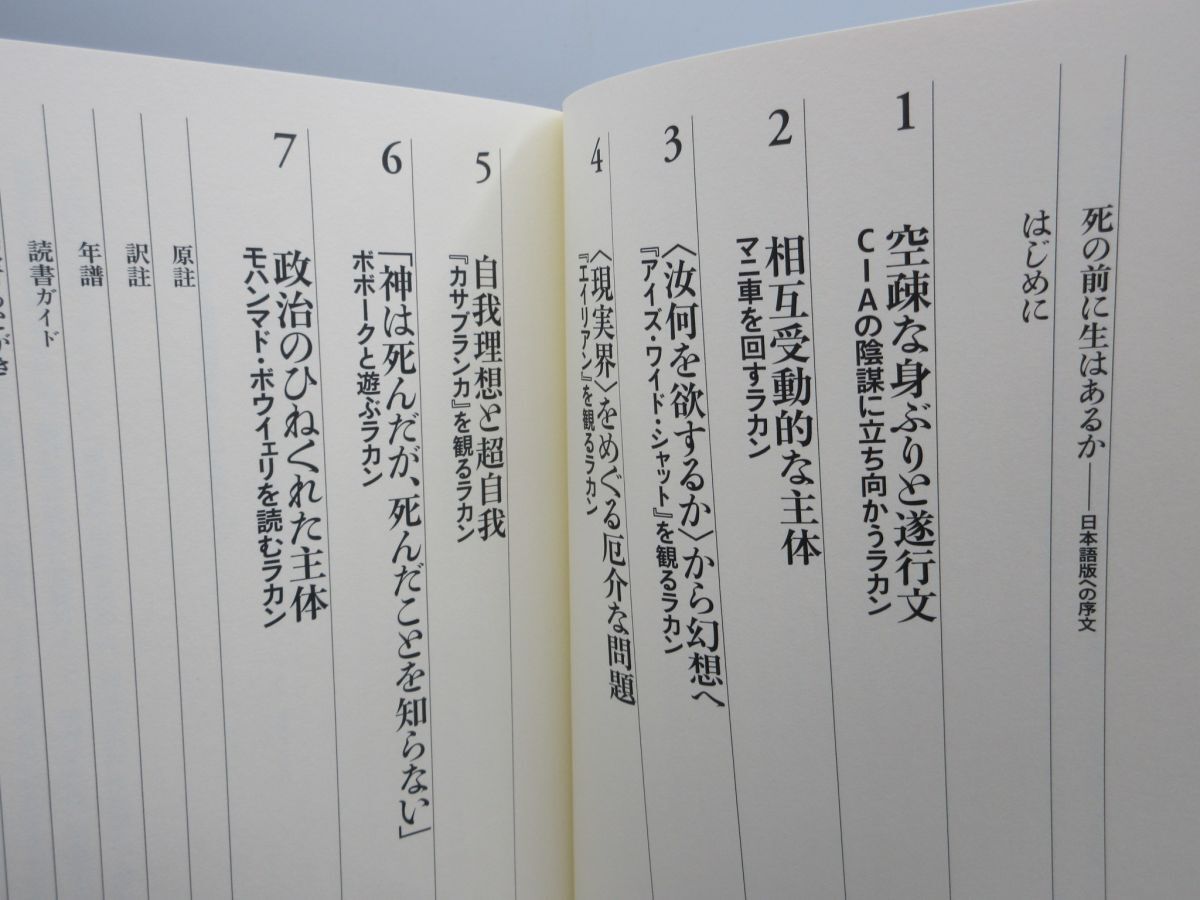 死の前に生はあるか──日本語版への序文
はじめに
1
空疎な身ぶりと遂行文
CIAの陰謀に立ち向かうラカン
2
相互受動的な主体
マニ車を回すラカン
3
〈汝何を欲するか〉から幻想へ
『アイズ・ワイド・シャット』を観るラカン
4
〈現実界〉をめぐる厄介な問題
『エイリアン』を観るラカン
5
自我理想と超自我
『カサブランカ』を観るラカン
6
「神は死んだが、死んだことを知らない」
ボボークと遊ぶラカン
7
政治のひねくれた主体
モハンマド・ボウイェリを読むラカン
原註
訳註
年譜
読書ガイド